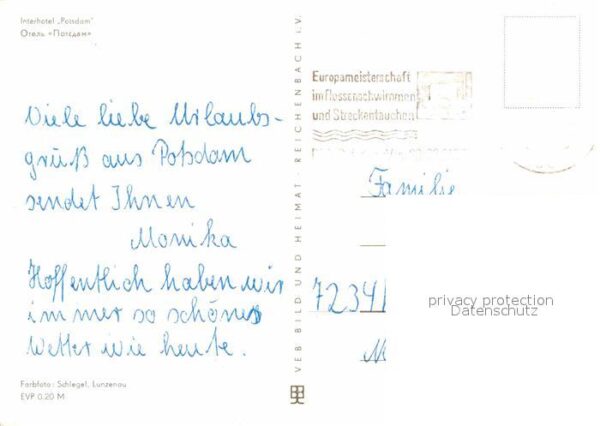 Interhotel „Potsdam"
Отель «Потсдам»
Viele liebe Urlaubs-
grüß aus Potsdam
sendet Ihnen
Monika
Hoffentlich haben wir
immer so schönes
Wetter wie heute.
Farbfoto: Schlegel, Lunzenau
EVP 0,20 M
VEB BILD UND HEIMAT · REICHENBACH i. V.
Europameisterschaft
im Flossenschwimmen
und Streckentauchen
Familie
7234
privacy protection
Datenschutz